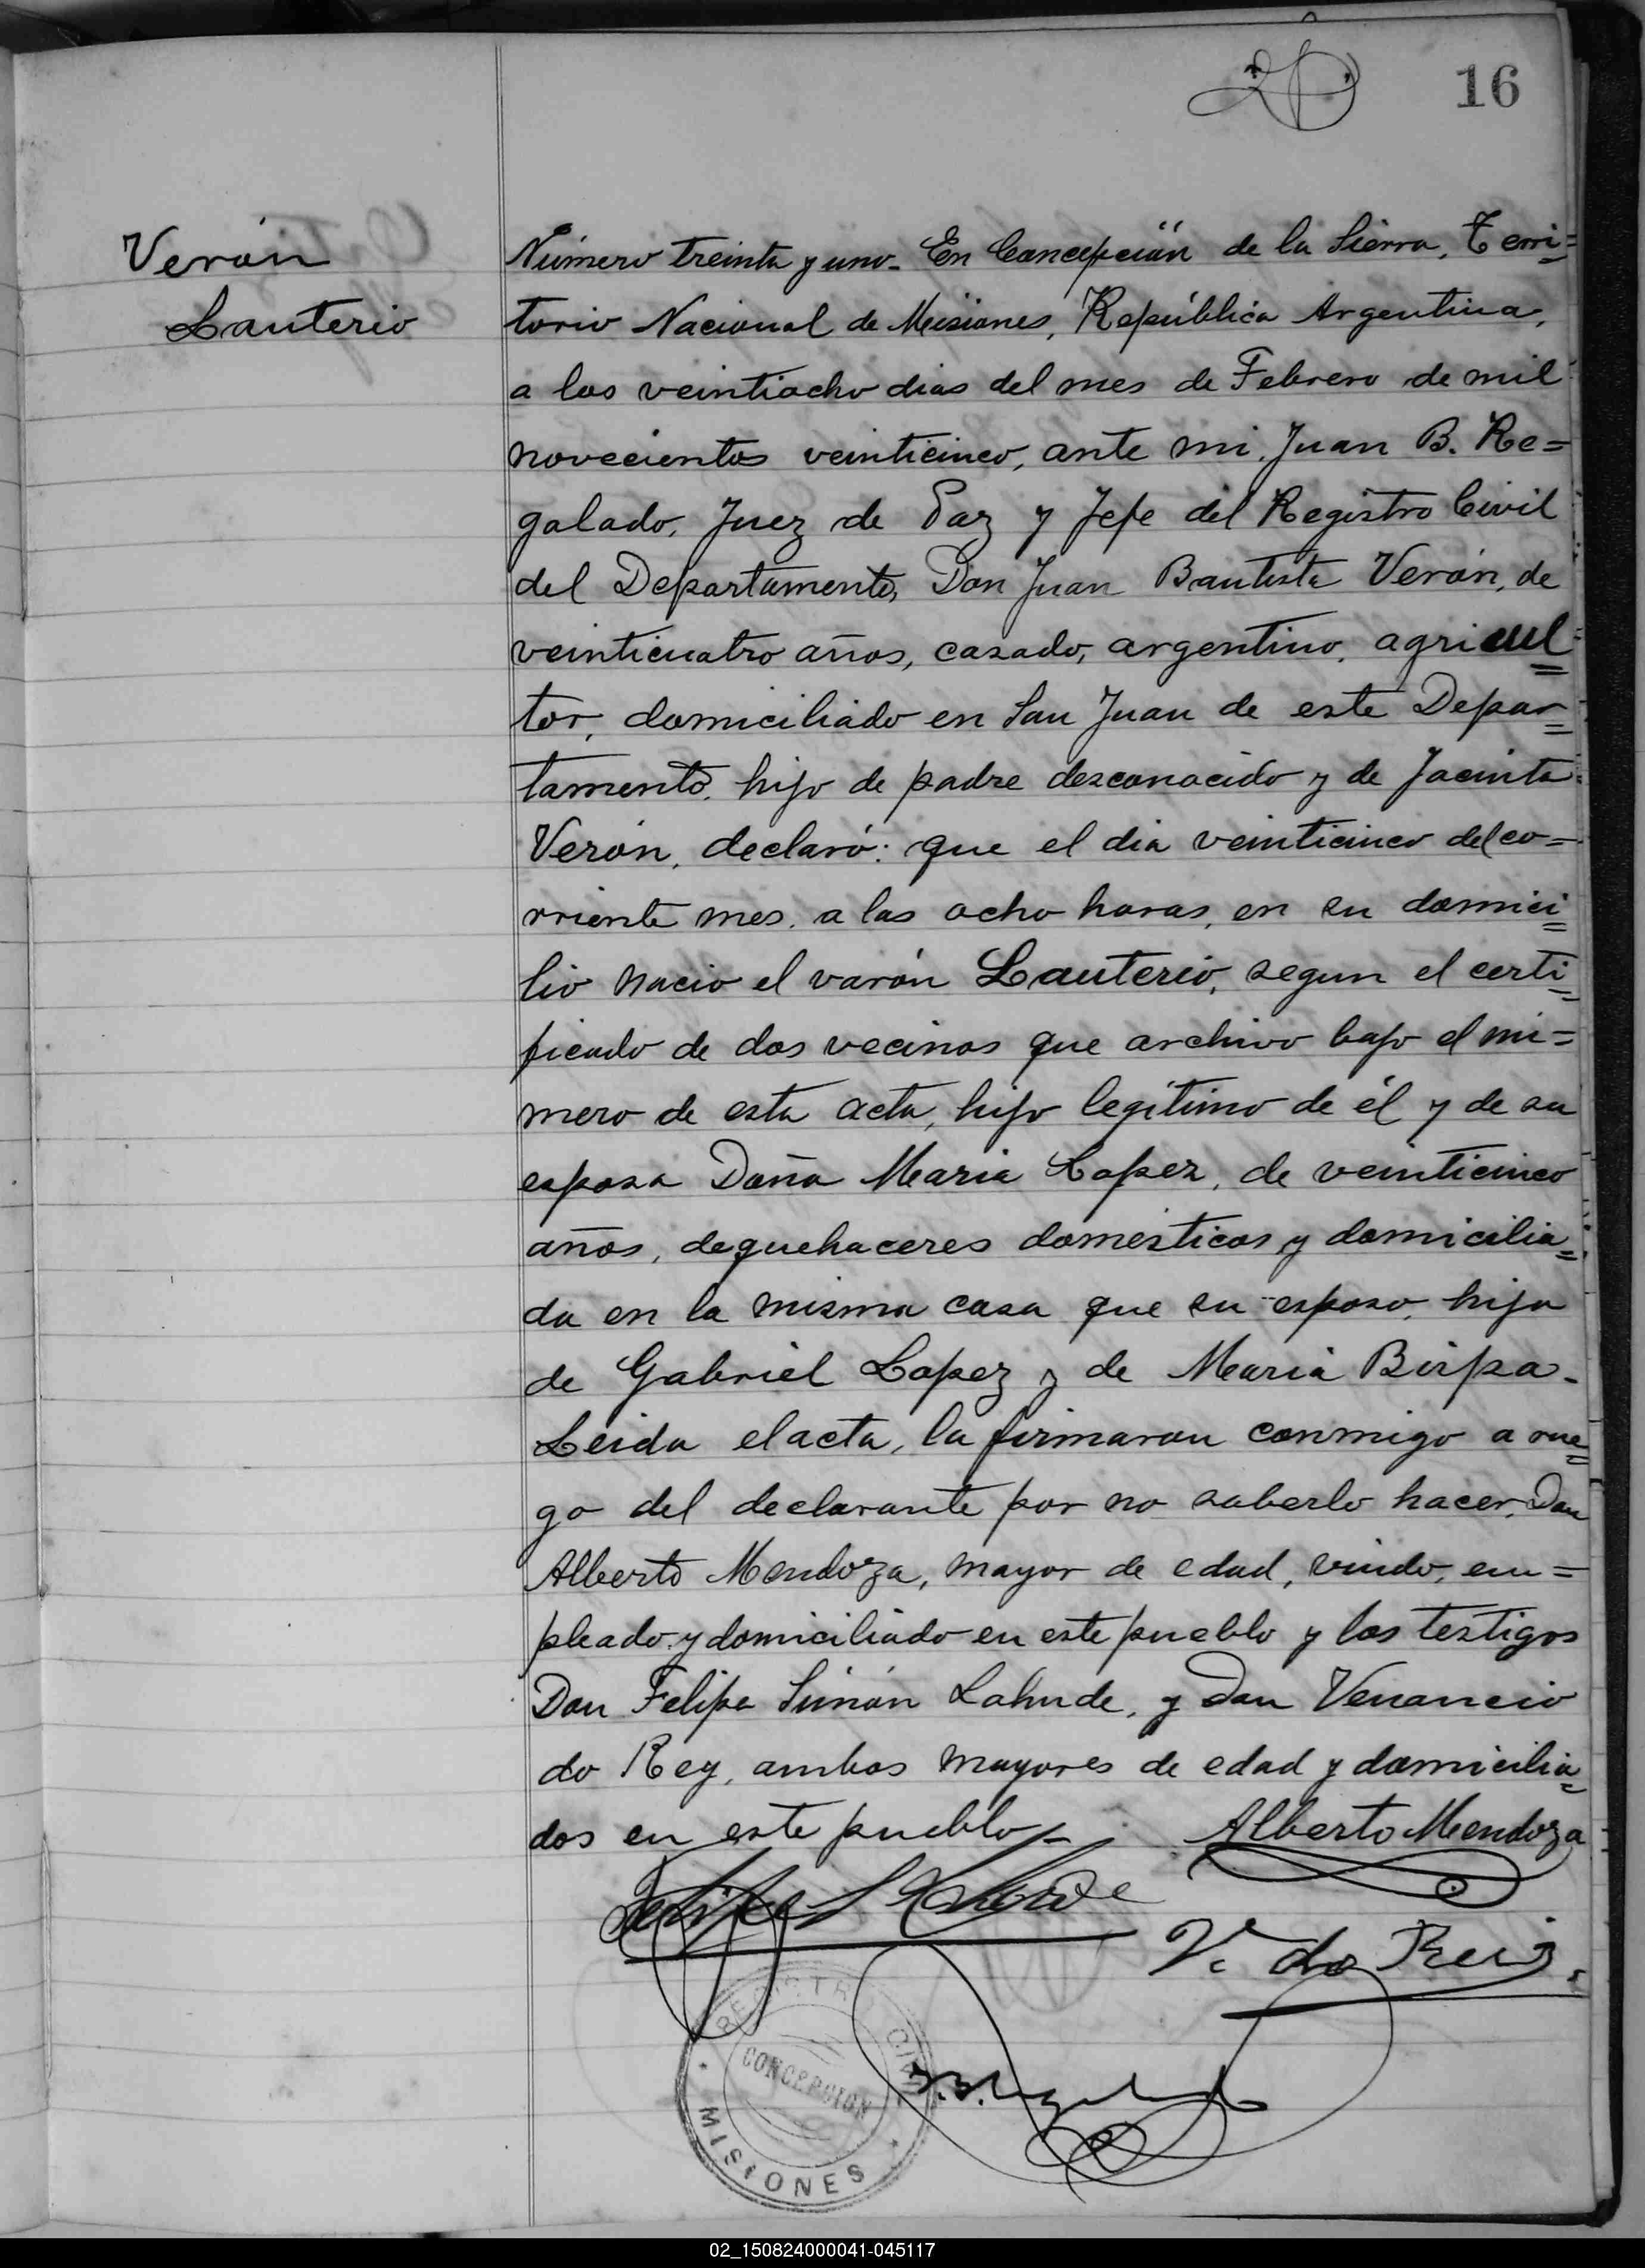 16
Verón
Lauterio
Número treinta y uno - En Concepción de la Sierra, Terri=
torio Nacional de Misiones, República Argentina,
a los veintiocho dias del mes de Febrero de mil
novecientos veinticinco, ante mi, Juan B. Re=
galado, Juez de Paz y Jefe del Registro Civil
del Departamento, Don Juan Bautista Verón, de
veinticuatro años, casado, argentino, agricul=
tor, domiciliado en San Juan de este Depar=
tamento, hijo de padre desconocido y de Jacinta
Verón, declaró: que el dia veinticinco del co=
rriente mes, a las ocho horas, en su domici=
lio nacio el varón Lauterio, segun el certi=
ficado de dos vecinos que archivo bajo el nú=
mero de esta acta, hijo legítimo de él y de su
esposa Doña Maria Lopez, de veinticinco
años, de quehaceres domésticos y domicilia=
da en la misma casa que su esposo, hija
de Gabriel Lopez y de Maria Birpa-
Leida el acta, la firmaron conmigo a rue=
go del declarante por no saberlo hacer, Don
Alberto Mendoza, mayor de edad, viudo, em=
pleado y domiciliado en este pueblo y los testigos
Don Felipe Simón Lahude, y Don Venancio
do Rey, ambos mayores de edad y domicilia=
dos en este pueblo-
Alberto Mendoza
Felipe S Lahude
V. do Rey
REGISTRO CIVIL
CONCEPCION
MISIONES
02_150824000041-045117